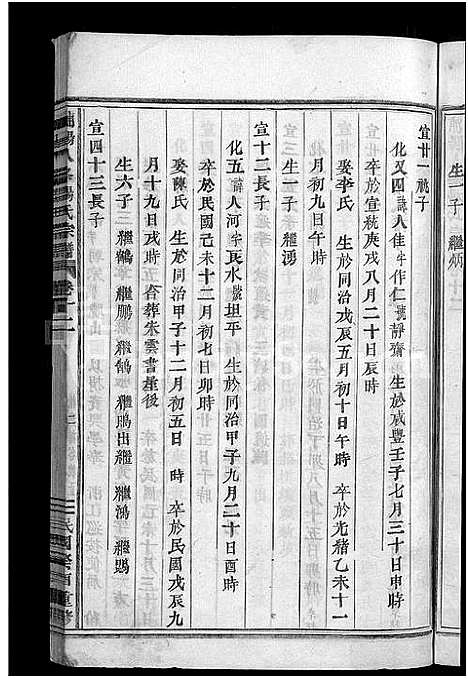 生一子 繼炳
宣廿一祧子
化又四諱人佳字作仁號靜齋 生於咸豐壬子七月三十日申時
卒於宣統庚戌八月二十日辰時
娶李氏 生於同治戊辰五月初十日午時 卒於光緒乙未十一
月初九日寅時
宣三
生一子 繼湧
宣十二長子
化五諱人河字長水號坦平 生於同治甲子九月二十日酉時
卒於民國己未十二月初七日卯時
娶陳氏 生於同治甲子十二月初五日 時 卒於民國戊辰九
月十九日戌時 合葬朱雲書基後
生六子 繼鶴 繼鵬 繼鵠 繼鵰出繼 繼鴻 繼鵾
宣四十三長子
楊氏宗譜 卷十二 民國癸酉重修